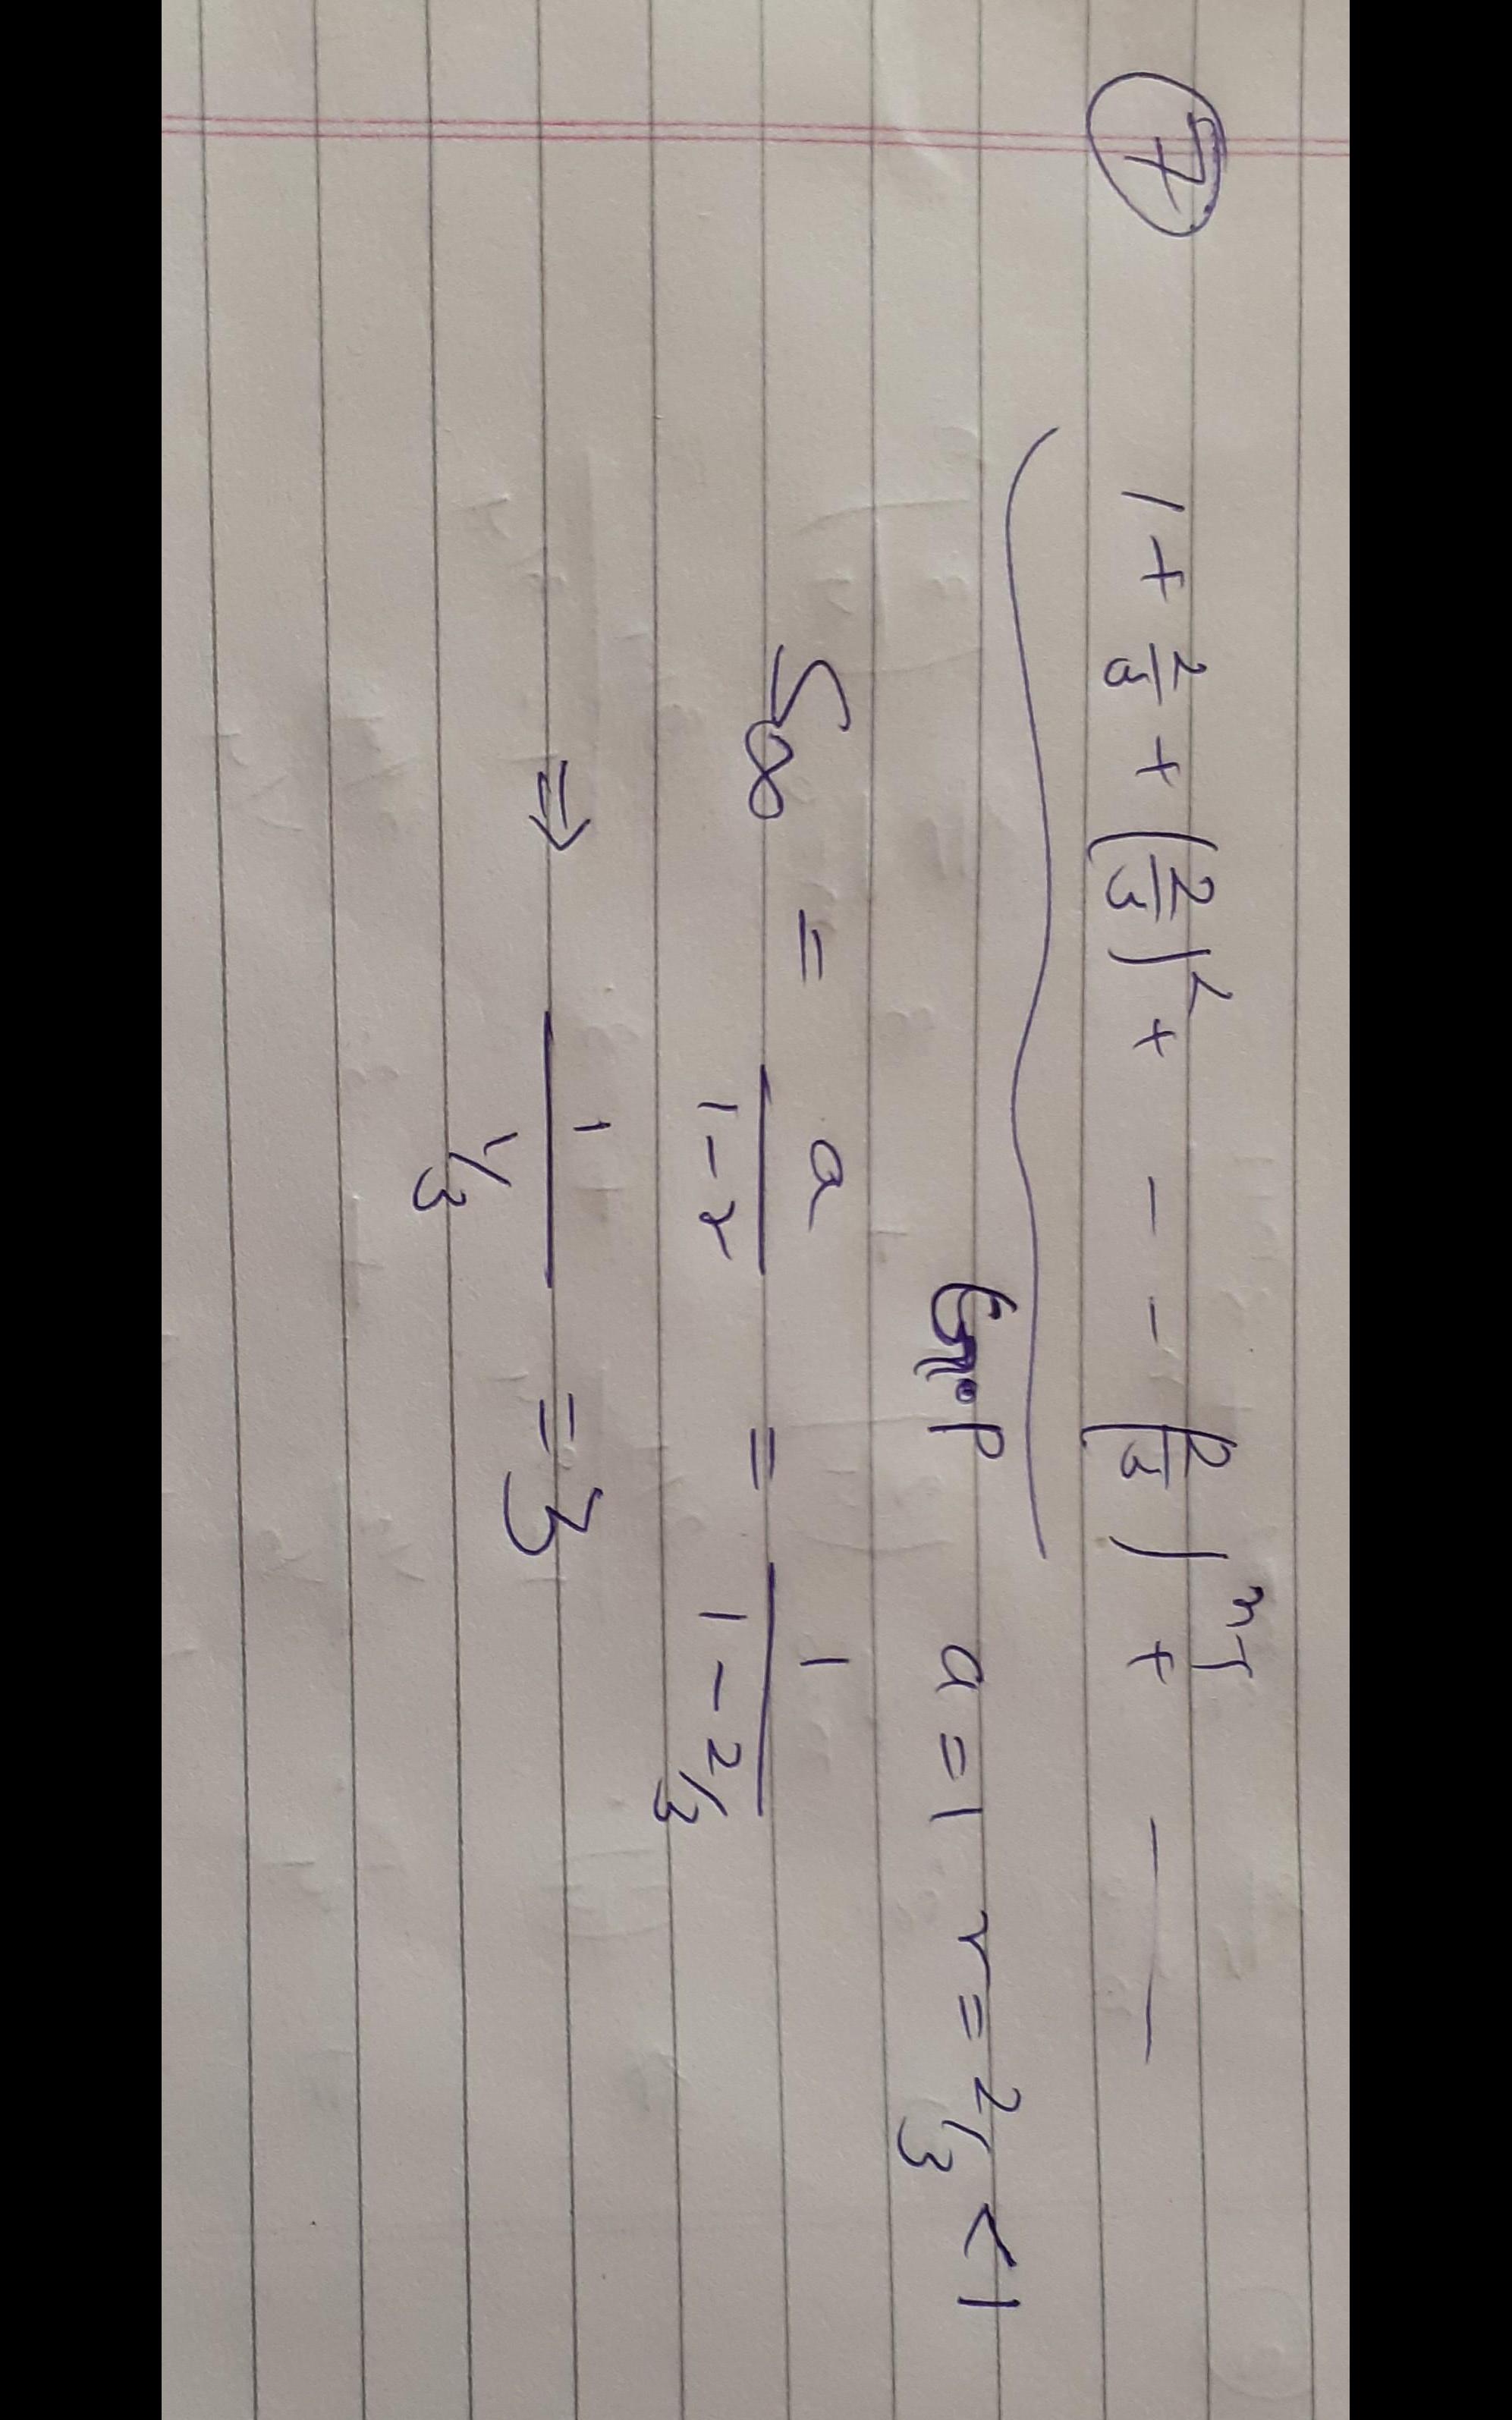 7
1 + 2/3 + (2/3)² + - - (2/3)ⁿ⁻¹ + - -
G.P a = 1 r = 2/3 < 1
S∞ = a/(1-r) = 1/(1 - 2/3)
⇒ 1/(1/3) = 3